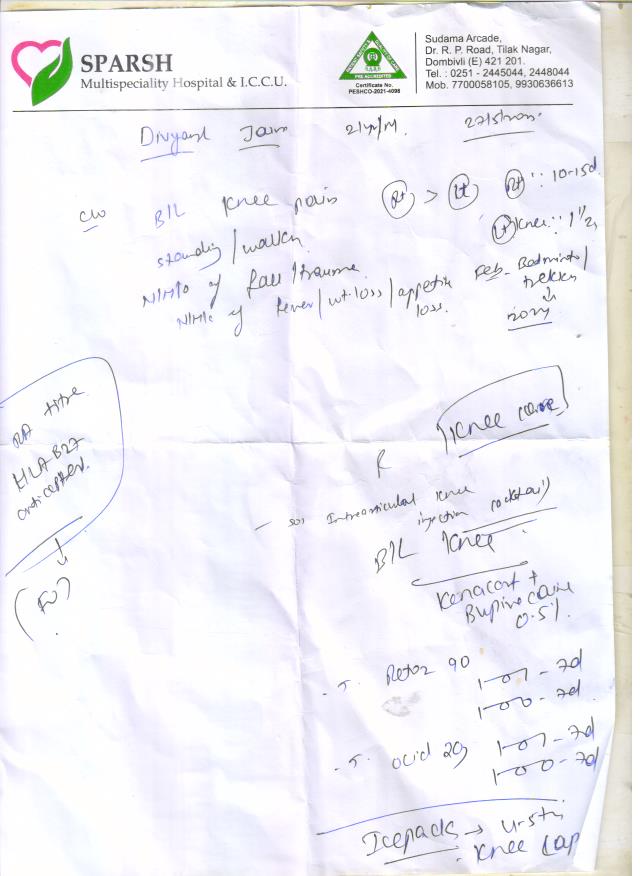 SPARSH
Multispeciality Hospital & I.C.C.U.
PRE ACCREDITED
Certificate No.
PESHCO-2021-4098
Sudama Arcade,
Dr. R. P. Road, Tilak Nagar,
Dombivli (E) 421 201.
Tel. : 0251 - 2445044, 2448044
Mob. 7700058105, 9930636613
Jain 21yr/M
c/o B/L Knee pain Rt > Lt Rt : 10-15d
Lt Knee : 1 1/2
standing / walk
N/H/o of fall / trauma
N/H/o of fever / wt. loss / appetite loss.
Feb - Badminton / trekking
RA titre
HLA B27
anti CCP
Knee care
R
- sos Intraarticular Knee
injection cocktail
B/L Knee
Kenacort +
Bupivacaine
0.5%
- T. Retoz 90 1-0-1 - 7d
1-0-0 - 7d
- T. Ocid 20 1-0-1 - 7d
1-0-0 - 7d
Icepacks →
- Knee Cap